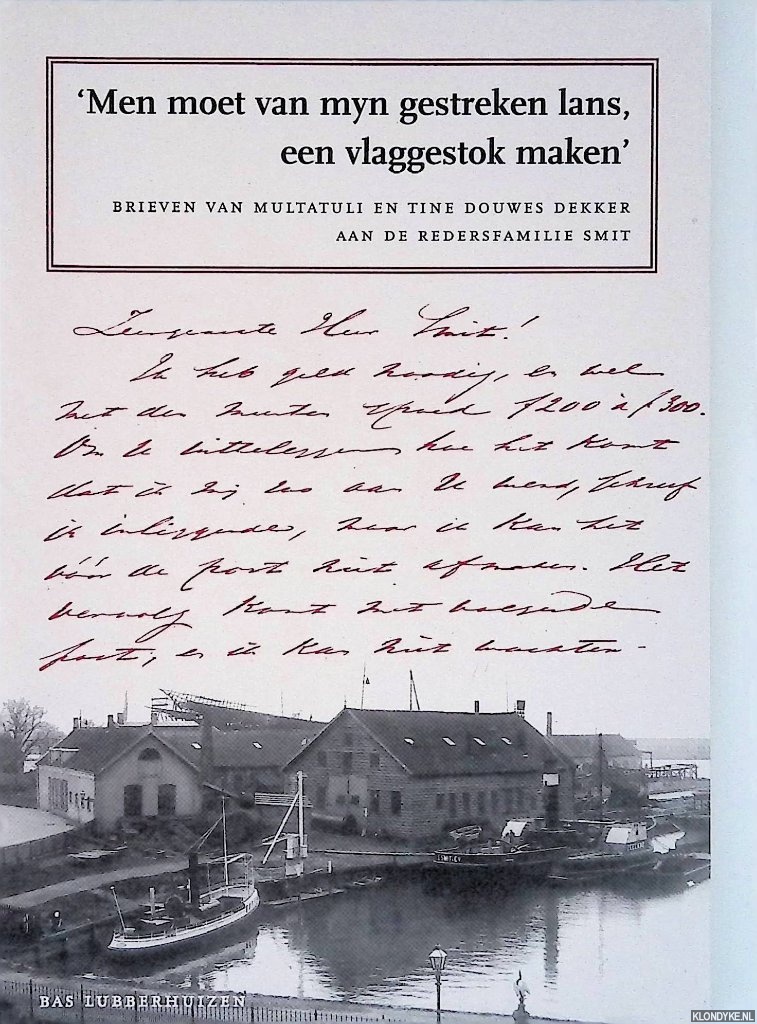 ‘Men moet van myn gestreken lans,
een vlaggestok maken’
BRIEVEN VAN MULTATULI EN TINE DOUWES DEKKER
AAN DE REDERSFAMILIE SMIT
Zeergeachte Heer Smit!
Ik heb geld noodig, en wel
met den meesten spoed f200 à f300.
Om U uitteleggen hoe het komt
dat ik mij dus aan U wend, schreef
ik inliggende, maar ik kan het
vóór de post niet afmaken. Het
vervolg komt met volgende
post, en ik kan niet wachten -
BAS LUBBERHUIZEN
KLONDYKE.NL